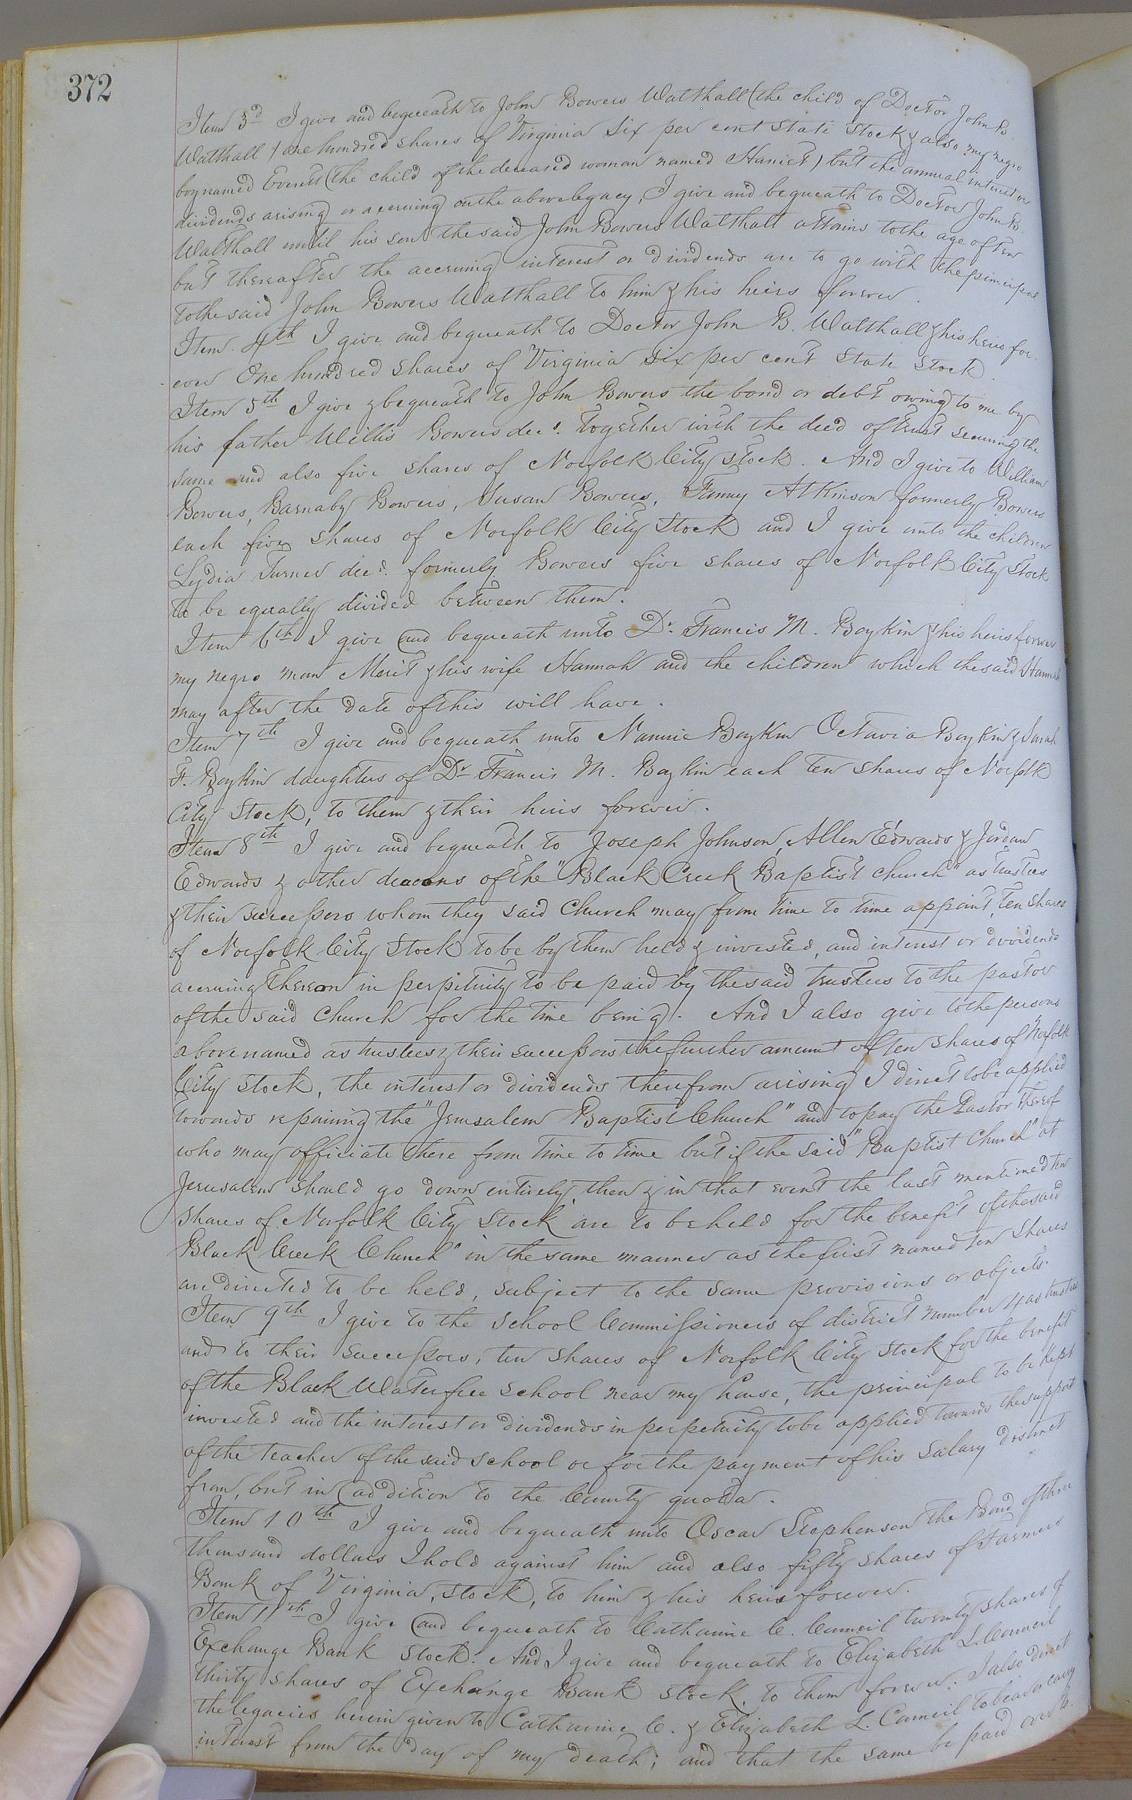 372
Item 3d I give and bequeath to John Bowers Watthall (the child of Doctor John B.
Watthall) one hundred shares of Virginia Six per cent State Stock & also my negro
boy named Everett (the child of the deceased woman named Harriet) but the annual interest or
dividends arising or accruing on the above legacy, I give and bequeath to Doctor John B.
Watthall until his son the said John Bowers Watthall attains to the age of Ten
but thereafter the accruing interest or dividends are to go with the principal
to the said John Bowers Watthall to him & his heirs forever.
Item 4th I give and bequeath to Doctor John B. Watthall & his heirs for
ever One hundred shares of Virginia Six per cent State Stock.
Item 5th I give & bequeath to John Bowers the bond or debt owing to me by
his father Willis Bowers decd. together with the deed of trust securing the
same and also five shares of Norfolk City Stock. And I give to William
Bowers, Barnaby Bowers, Susan Bowers, Fanny Atkinson formerly Bowers
each five shares of Norfolk City Stock and I give unto the children
Lydia Turner decd. formerly Bowers five shares of Norfolk City Stock
to be equally divided between them.
Item 6th I give and bequeath unto Dr. Francis M. Boykin & his heirs forever
my negro man Merit & his wife Hannah and the children which the said Hannah
may after the date of this will have.
Item 7th I give and bequeath unto Nannie Boykin Octavia Boykin & Sarah
F. Boykin daughters of Dr. Francis M. Boykin each ten shares of Norfolk
City Stock, to them & their heirs forever.
Item 8th I give and bequeath to Joseph Johnson, Allen Edwards & Jordan
Edwards & other deacons of the "Black Creek Baptist Church" as trustees
& their successors whom they said Church may from time to time appoint, Ten shares
of Norfolk City Stock to be by them held & invested, and interest or dividends
accruing thereon in perpituity to be paid by the said trustees to the pastor
of the said Church for the time being. And I also give to the persons
above named as trustees & their successors the further amount of ten shares of Norfolk
City Stock, the interest or dividends therefrom arising I direct to be applied
towards repairing the "Jerusalem Baptist Church" and to pay the Pastor thereof
who may officiate there from time to time but if the said "Baptist Church" at
Jerusalem should go down entirely, then & in that event the last mentioned ten
shares of Norfolk City Stock are to be held for the benefit of the said
Black Creek Church" in the same manner as the first named ten shares
are directed to be held, subject to the same provisions or objects.
Item 9th I give to the School Commissioners of district number 4 as trustees
and to their successors, ten shares of Norfolk City Stock for the benefit
of the Black Water free School near my house, the principal to be kept
invested and the interest or dividends in perpetuity to be applied towards the support
of the teacher of the said School or for the payment of his salary distinct
from, but in addition to the County quota.
Item 10th I give and bequeath unto Oscar Stephenson the Bond of three
thousand dollars I hold against him and also fifty shares of Farmers
Bank of Virginia, Stock, to him & his heirs forever.
Item 11th I give and bequeath to Catharine C. Council twenty shares of
Exchange Bank Stock. And I give and bequeath to Elizabeth L. Council
thirty shares of Exchange Bank Stock, to them forever. I also direct
the legacies herein given to Catharine C. & Elizabeth L. Council to bear or carry
interest from the day of my death; and that the same be paid over to